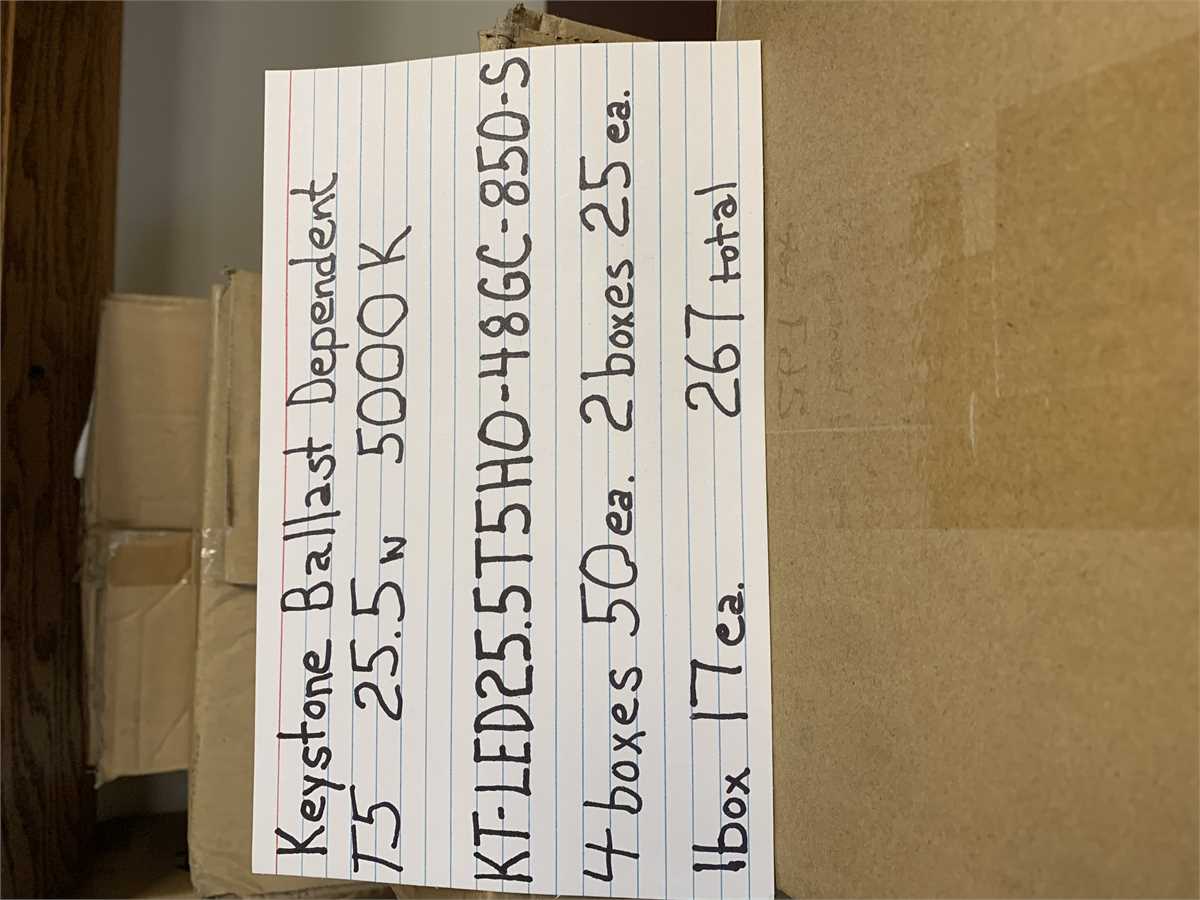 Keystone Ballast Dependent
T5 25.5w 5000K
KT-LED25.5T5HO-48GC-850-S
4 boxes 50 ea. 2 boxes 25 ea.
1 box 17 ea. 267 total